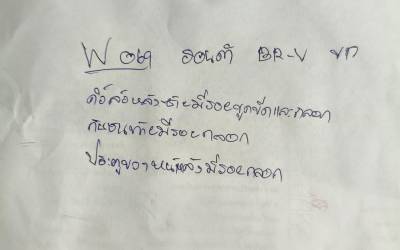 W ๐๒๑ ฮอนด้า BR-V ขาว
ดิ้วล้อหลังซ้ายมีรอยขูดขีดและถลอก
กันชนท้ายมีรอยถลอก
ประตูขวาหน้าหลังมีรอยถลอก